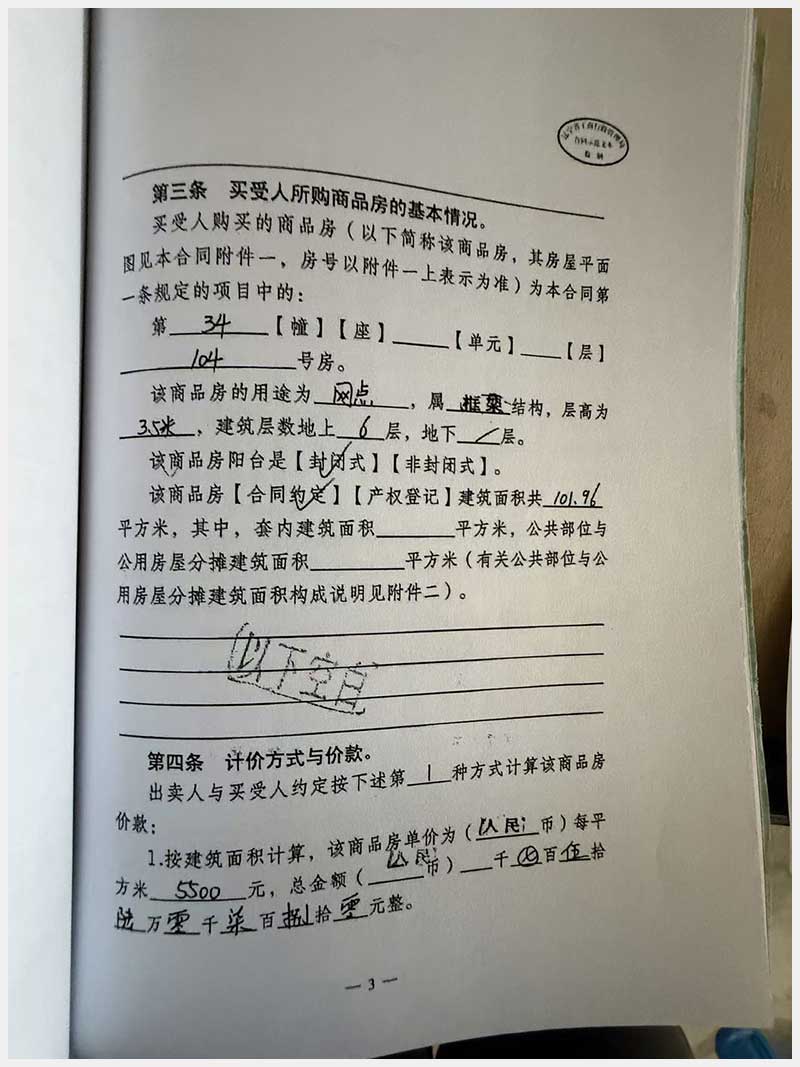 辽宁省工商行政管理局
合同示范文本
监制
第三条 买受人所购商品房的基本情况。
买受人购买的商品房（以下简称该商品房，其房屋平面
图见本合同附件一，房号以附件一上表示为准）为本合同第
一条规定的项目中的：
第 34 【幢】【座】 【单元】 【层】
104 号房。
该商品房的用途为 网点 ，属 框架 结构，层高为
3.5米 ，建筑层数地上 6 层，地下 / 层。
该商品房阳台是【封闭式】【非封闭式】。
该商品房【合同约定】【产权登记】建筑面积共 101.96
平方米，其中，套内建筑面积 平方米，公共部位与
公用房屋分摊建筑面积 平方米（有关公共部位与公
用房屋分摊建筑面积构成说明见附件二）。
以下空白
第四条 计价方式与价款。
出卖人与买受人约定按下述第 1 种方式计算该商品房
价款：
1.按建筑面积计算，该商品房单价为（人民币）每平
方米 5500 元，总金额（人民币） 千 百 伍 拾
陆 万 零 千 柒 百 捌 拾 零 元整。
— 3 —